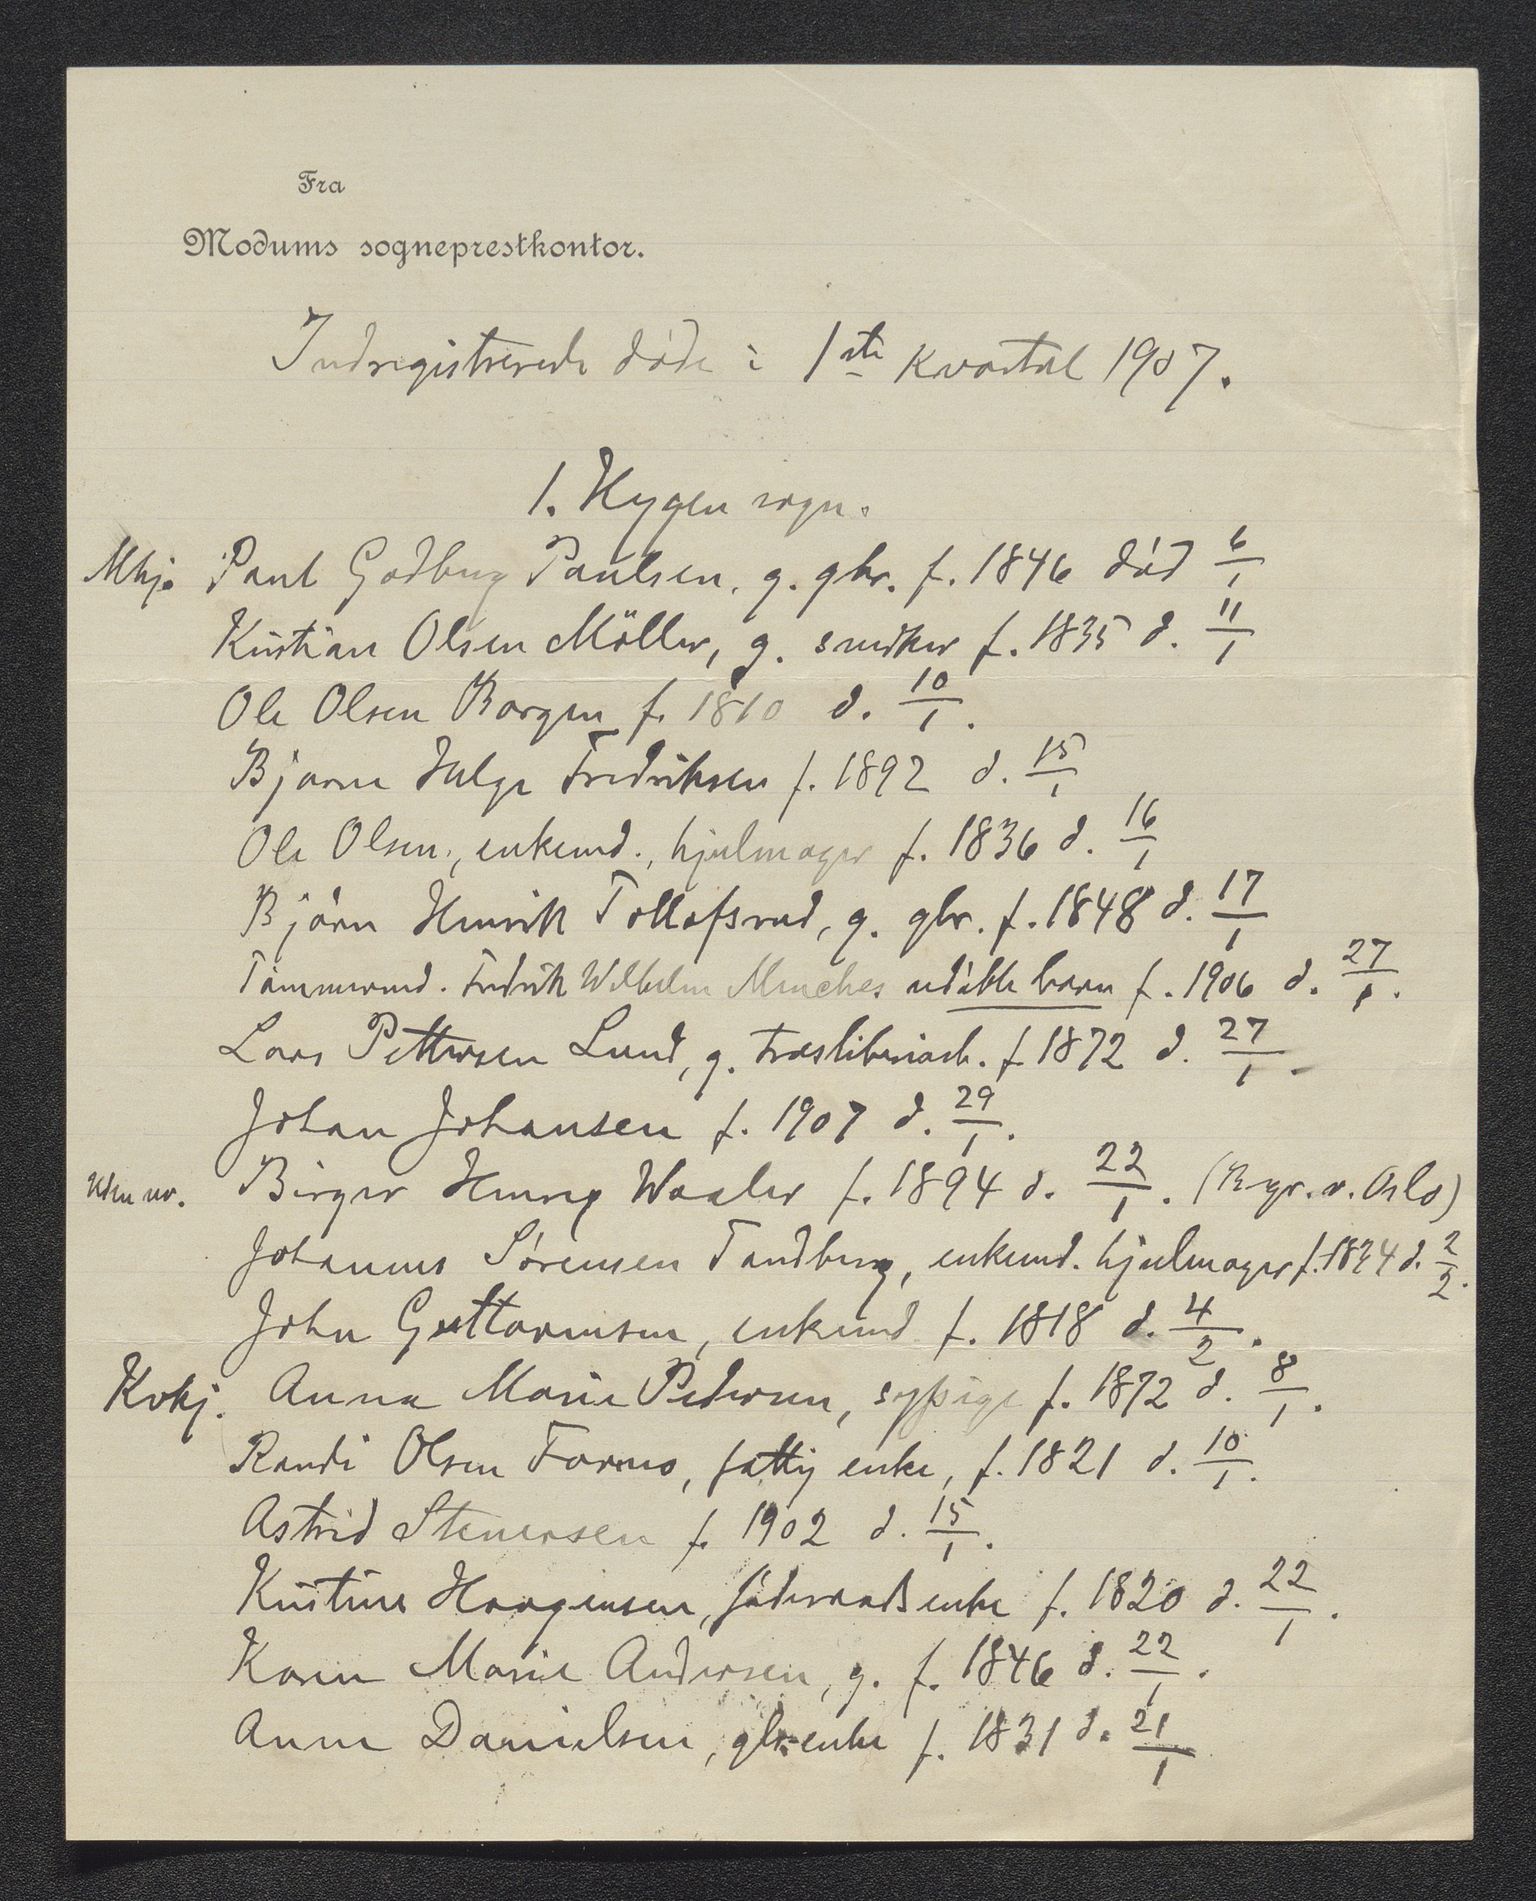 Fra
Modums sogneprestkontor.
Indregistrerede døde i 1ste kvartal 1907.
1. Hygen sogn.
Mkj. Paul Godbug Paulsen, g. gbr. f. 1846 død 6/1
Kristian Olsen Möller, g. snedker f. 1835 d. 11/1
Ole Olsen Borgen f. 1810 d. 10/1.
Bjarne Helge Fredriksen f. 1892 d. 15/1
Ole Olsen, enkemd., hjulmager f. 1836 d. 16/1
Bjørn Henrik Tollofsrud, g. gbr. f. 1848 d. 17/1
Tømmermd. Fredrik Wilhelm Munches udøbte barn f. 1906 d. 27/1.
Lars Pettersen Lund, g. træsliberiarb. f. 1872 d. 27/1.
Johan Johansen f. 1907 d. 29/1.
uden nr. Birger Henry Waaler f. 1894 d. 22/1. (Bgr. v. Oslo)
Johannes Sørensen Tandberg, enkemd. hjulmager f. 1824 d. 2/2.
John Guttormsen, enkemd f. 1818 d. 4/2.
Kvkj. Anna Marie Pedersen, sypige f. 1872 d. 8/1.
Randi Olsen Formo, fattig enke, f. 1821 d. 10/1.
Astrid Stenersen f. 1902 d. 15/1.
Kristine Haagensen, føderaadsenke f. 1820 d. 22/1.
Karen Marie Andersen, g. f. 1846 d. 22/1.
Anne Danielsen, gbr.enke f. 1831 d. 21/1